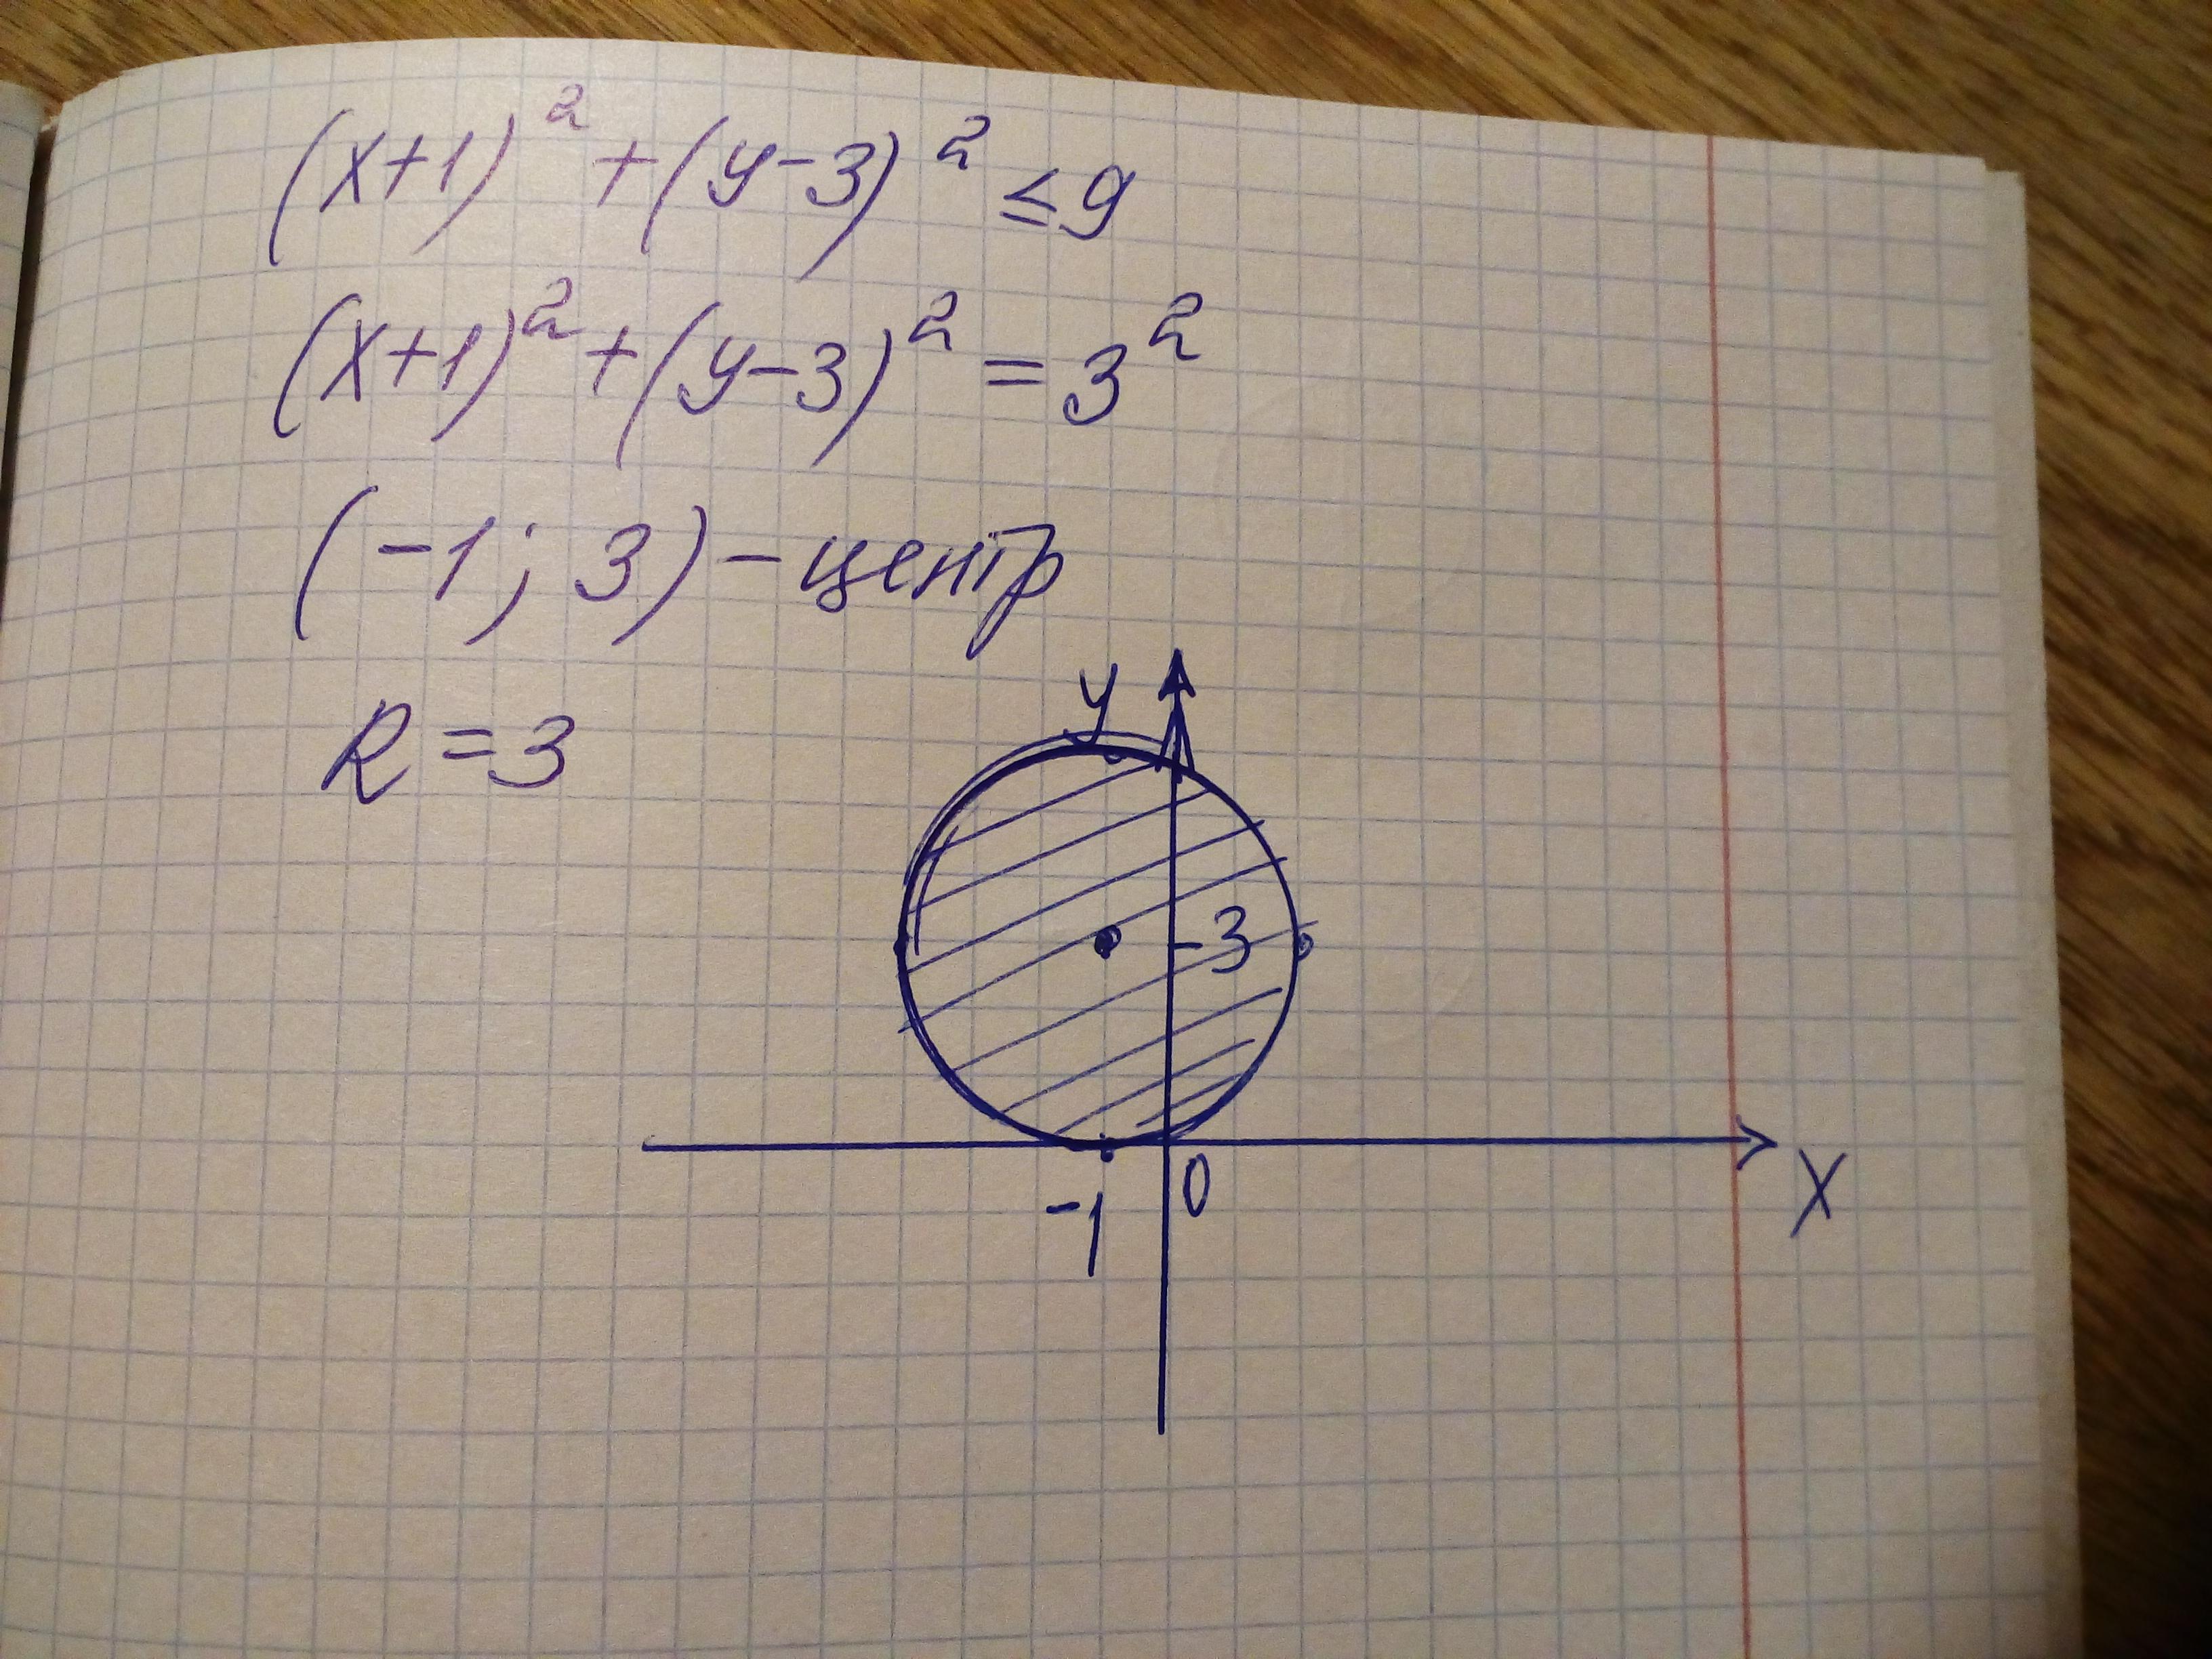 (x+1)² + (y-3)² ≤ 9
(x+1)² + (y-3)² = 3²
(-1; 3) - центр
R = 3
y
3
-1 0
X